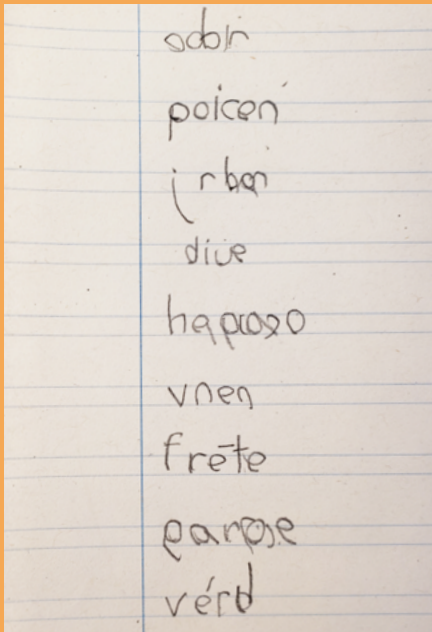 odoir
poicen
jrban
dive
hapcoso
vnen
frete
parpse
vérd